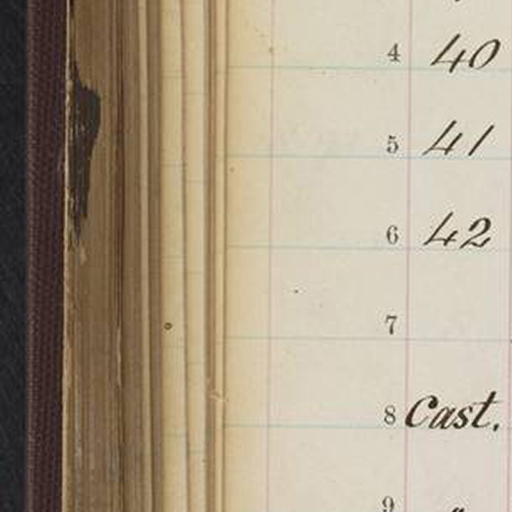 4 40
5 41
6 42
7
8 Cast.
9 "